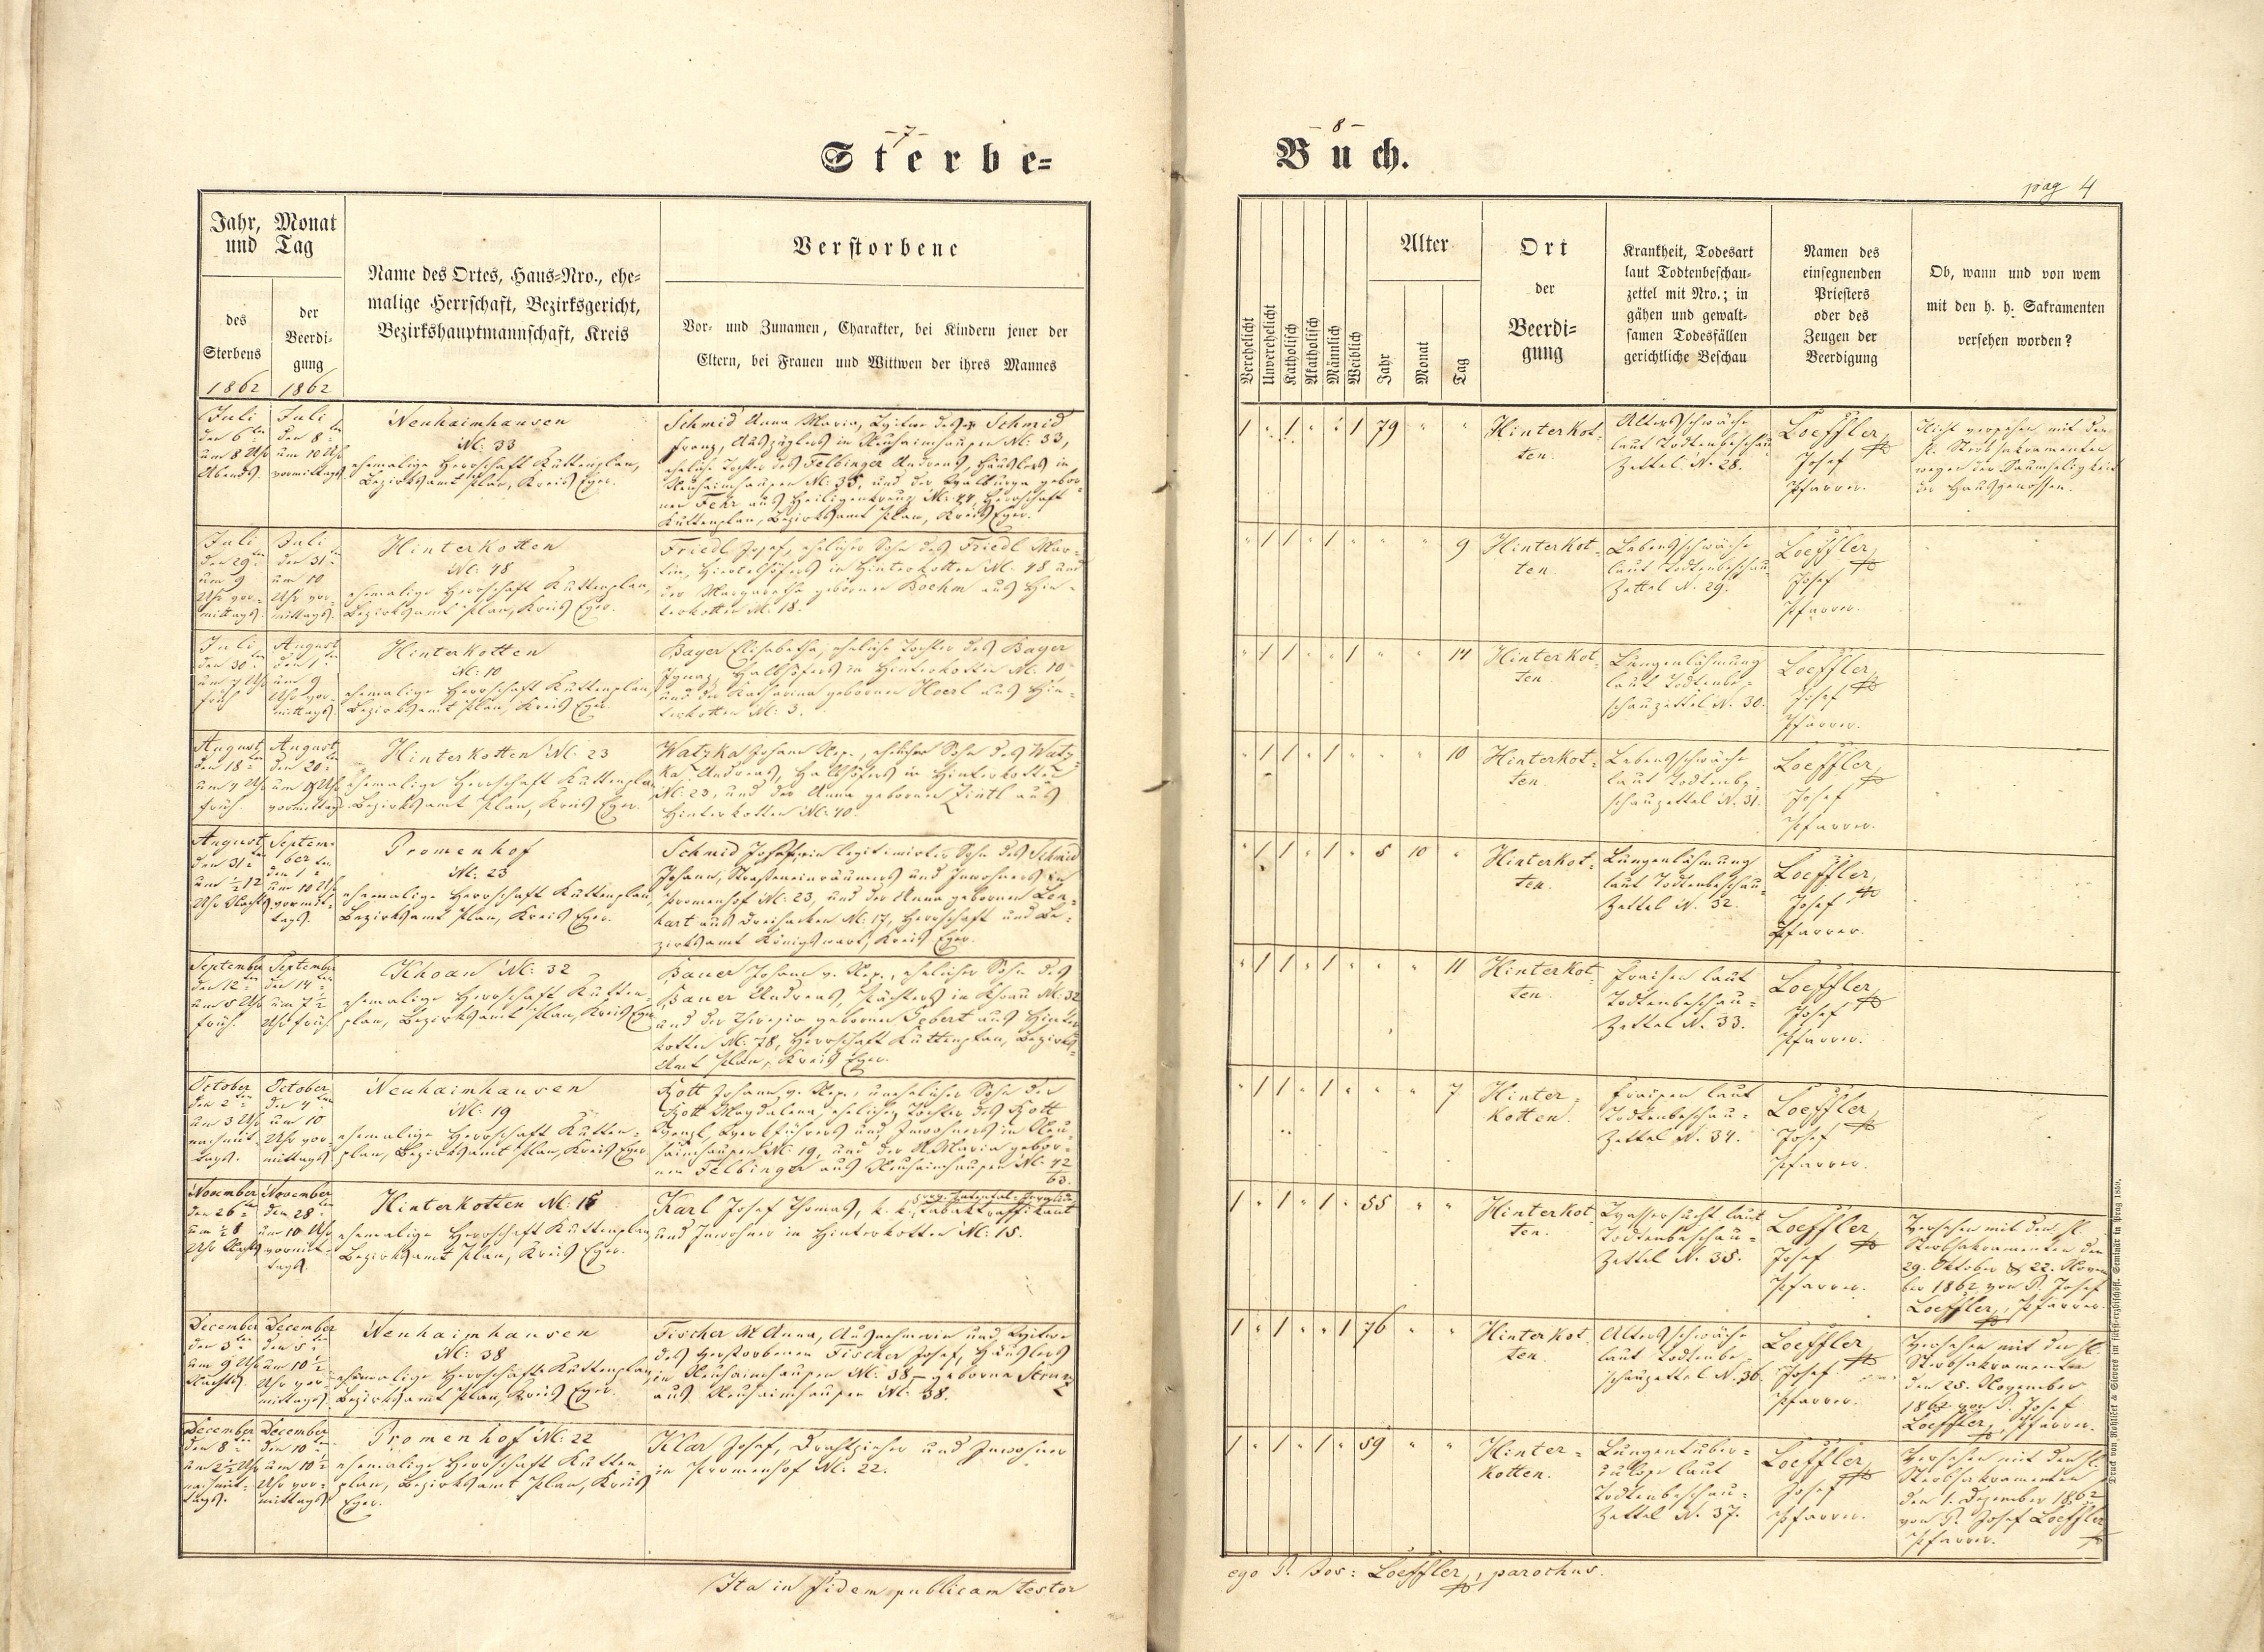 - 7 -
Sterbe=
Jahr, Monat
und Tag
des
Sterbens
1862
der
Beerdi=
gung
1862
Name des Ortes, Haus=Nro., ehe=
malige Herrschaft, Bezirksgericht,
Bezirkshauptmannschaft, Kreis
Verstorbene
Vor= und Zunamen, Charakter, bei Kindern jener der
Eltern, bei Frauen und Wittwen der ihres Mannes
Juli
den 6ten
um 8 Uhr
Abends.
Juli
den 8ten
um 10 Uhr
vormittags.
Neuhaimhausen
N: 33
ehemalige Herrschaft Kuttenplan,
Bezirksamt Plan, Kreis Eger.
Schmid Anna Maria, Witwe des Schmid
Franz, Auszüglers in Neuhaimhausen N: 33,
eheliche Tochter des Felbinger Andreas, Häuslers in
Neuhaimhausen N: 35, und der Walburga gebor=
nen Fehr aus Heiligenkreuz N: 44, Herrschaft
Kuttenplan, Bezirksamt Plan, Kreis Eger.
Juli
den 29ten
um 9
Uhr vor=
mittags.
Juli
den 31ten
um 10
Uhr vor=
mittags.
Hinterkotten
N: 48
ehemalige Herrschaft Kuttenplan,
Bezirksamt Plan, Kreis Eger.
Friedl Josef, ehelicher Sohn des Friedl Mar=
tin, Viertelhöfers in Hinterkotten N: 48 und
der Margaretha gebornen Boehm aus Hin=
terkotten N: 18.
Juli
den 30ten
um 7 Uhr
früh
August
den 1ten
um 9
Uhr vor=
mittags.
Hinterkotten
N: 10
ehemalige Herrschaft Kuttenplan,
Bezirksamt Plan, Kreis Eger.
Bayer Elisabetha, eheliche Tochter des Bayer
Ignaz, Halbhöfers in Hinterkotten N: 10
und der Katharina gebornen Hoerl aus Hin=
terkotten N: 3.
August
den 18ten
um 4 Uhr
früh.
August
den 20ten
um Uhr
vormittags
Hinterkotten N: 23
ehemalige Herrschaft Kuttenplan
Bezirksamt Plan, Kreis Eger.
Watzka Johann Nep., ehelicher Sohn des Watz=
ka Andreas, Halbhöfers in Hinterkotten
N: 23, und der Anna gebornen Zintl aus
Hinterkotten N: 40.
August
den 31ten
um ½12
Uhr Nachts.
Septem=
ber
den 1ten
um 10 Uhr
vormit=
tags.
Promenhof
N: 23
ehemalige Herrschaft Kuttenplan,
Bezirksamt Plan, Kreis Eger.
Schmid Josef, ein legitimirter Sohn des Schmid
Johann, Straßeneinräumers und Inwohners in
Promenhof N: 23, und der Anna gebornen Len=
hart aus Dreihacken N: 17, Herrschaft und Be=
zirksamt Königswart, Kreis Eger.
September
den 12ten
um 5 Uhr
früh.
September
den 14ten
um 7½
Uhr früh.
Khoau N: 32
ehemalige Herrschaft Kutten=
plan, Bezirksamt Plan, Kreis Eger
Bauer Johann v. Nep., ehelicher Sohn des
Bauer Andreas, Pächters in Khoau N: 32
und der Theresia gebornen Gobert aus Hinter
kotten N: 78, Herrschaft Kuttenplan, Bezirks=
Amt Plan, Kreis Eger.
October
den 2ten
um 3 Uhr
nachmit=
tags.
October
den 4ten
um 10
Uhr vor=
mittags
Neuhaimhausen
N: 19
ehemalige Herrschaft Kutten=
plan, Bezirksamt Plan, Kreis Eger
Kott Johann v. Nep., unehelicher Sohn der
Kott Magdalena, ehelicher Tochter des Kott
Wenzl, Werkführers und Inwohners in Neu=
haimhausen N: 19, und der M. Maria gebor=
nen Felbinger aus Neuhaimhausen N: 42
63.
November
den 26ten
um ½8
Uhr Nachts
November
den 28ten
um 10 Uhr
vormit=
tags.
Hinterkotten N: 15
ehemalige Herrschaft Kuttenplan
Bezirksamt Plan, Kreis Eger.
Karl Josef Thomas, k. k. Tabaktraffikant
und Inwohner in Hinterkotten N: 15.
December
den 3ten
um 9 Uhr
Nachts.
December
den 5ten
um 10½
Uhr vor=
mittags
Neuhaimhausen
N: 38
ehemalige Herrschaft Kuttenplan,
Bezirksamt Plan, Kreis Eger.
Fischer M. Anna, Ausnehmerin und Witwe
des verstorbenen Fischer Josef, Häuslers
in Neuhaimhausen N: 38 geborne Strunz
aus Neuhaimhausen N: 38.
December
den 8ten
um 2½ Uhr
nachmit=
tags.
December
den 10ten
um 10½
Uhr vor=
mittags
Promenhof N: 22
ehemalige Herrschaft Kutten=
plan, Bezirksamt Plan, Kreis
Eger.
Klar Josef, Drahtzieher und Inwohner
in Promenhof N: 22.
Ita in fidem publicam testor
- 8 -
Buch.
pag 4
Verehelicht
Unverehelicht
Katholisch
Akatholisch
Männlich
Weiblich
Alter
Jahr
Monat
Tag
Ort
der
Beerdi=
gung
Krankheit, Todesart
laut Todtenbeschau=
zettel mit Nro.; in
gähen und gewalt=
samen Todesfällen
gerichtliche Beschau
Namen des
einsegnenden
Priesters
oder des
Zeugen der
Beerdigung
Ob, wann und von wem
mit den h. h. Sakramenten
versehen worden?
1 " 1 " " 1 79 " "
Hinterkot=
ten.
Altersschwäche
laut Todtenbeschau
Zettel N. 28.
Loeffler,
Josef
Pfarrer.
Nicht versehen mit den
h. Sterbsakramenten
wegen der Saumseligkeit
der Hausgenossen.
" 1 1 " 1 " " " 9
Hinterkot=
ten.
Lebensschwäche
laut Todtenbeschau
Zettel N. 29.
Loeffler,
Josef
Pfarrer.
" 1 1 " " 1 " " 14
Hinterkot=
ten.
Lungenlähmung
laut Todtenbe=
schauzettel N. 30.
Loeffler,
Josef
Pfarrer.
" 1 1 " 1 " " " 10
Hinterkot=
ten
Lebensschwäche
laut Todtenbe=
schauzettel N. 31.
Loeffler,
Josef
Pfarrer.
" 1 1 " 1 " 5 10 "
Hinterkot=
ten.
Lungenlähmung
laut Todtenbeschau=
Zettel N. 32.
Loeffler,
Josef
Pfarrer.
" 1 1 " 1 " " " 11
Hinterkot=
ten.
Fraisen laut
Todtenbeschau=
Zettel N. 33.
Loeffler,
Josef
Pfarrer.
" 1 1 " 1 " " " 7
Hinter=
kotten.
Fraisen laut
Todtenbeschau=
Zettel N. 34.
Loeffler,
Josef
Pfarrer.
1 " 1 " 1 " 55 " "
Hinterkot=
ten.
Wassersucht laut
Todtenbeschau=
Zettel N. 35.
Loeffler,
Josef
Pfarrer.
Versehen mit den hl.
Sterbsakramenten den
29. Oktober & 22. Novem
ber 1862 von P. Josef
Loeffler, Pfarrer.
1 " 1 " " 1 76 " "
Hinterkot=
ten.
Altersschwäche
laut Todtenbe=
schauzettel N. 36.
Loeffler
Josef
Pfarrer.
Versehen mit den hl.
Sterbsakramenten
den 25. November
1862 von P. Josef
Loeffler, Pfarrer.
1 " 1 " 1 " 59 " "
Hinter=
kotten.
Lungentuber=
kulose laut
Todtenbeschau=
Zettel N. 37.
Loeffler,
Josef
Pfarrer.
Versehen mit den hl.
Sterbsakramenten
den 1. Dezember 1862
von P. Josef Loeffler
Pfarrer.
ego P. Jos: Loeffler, parochus.
Druck von Rohliček & Sievers im fürst-erzbischöfl. Seminär in Prag 1859.